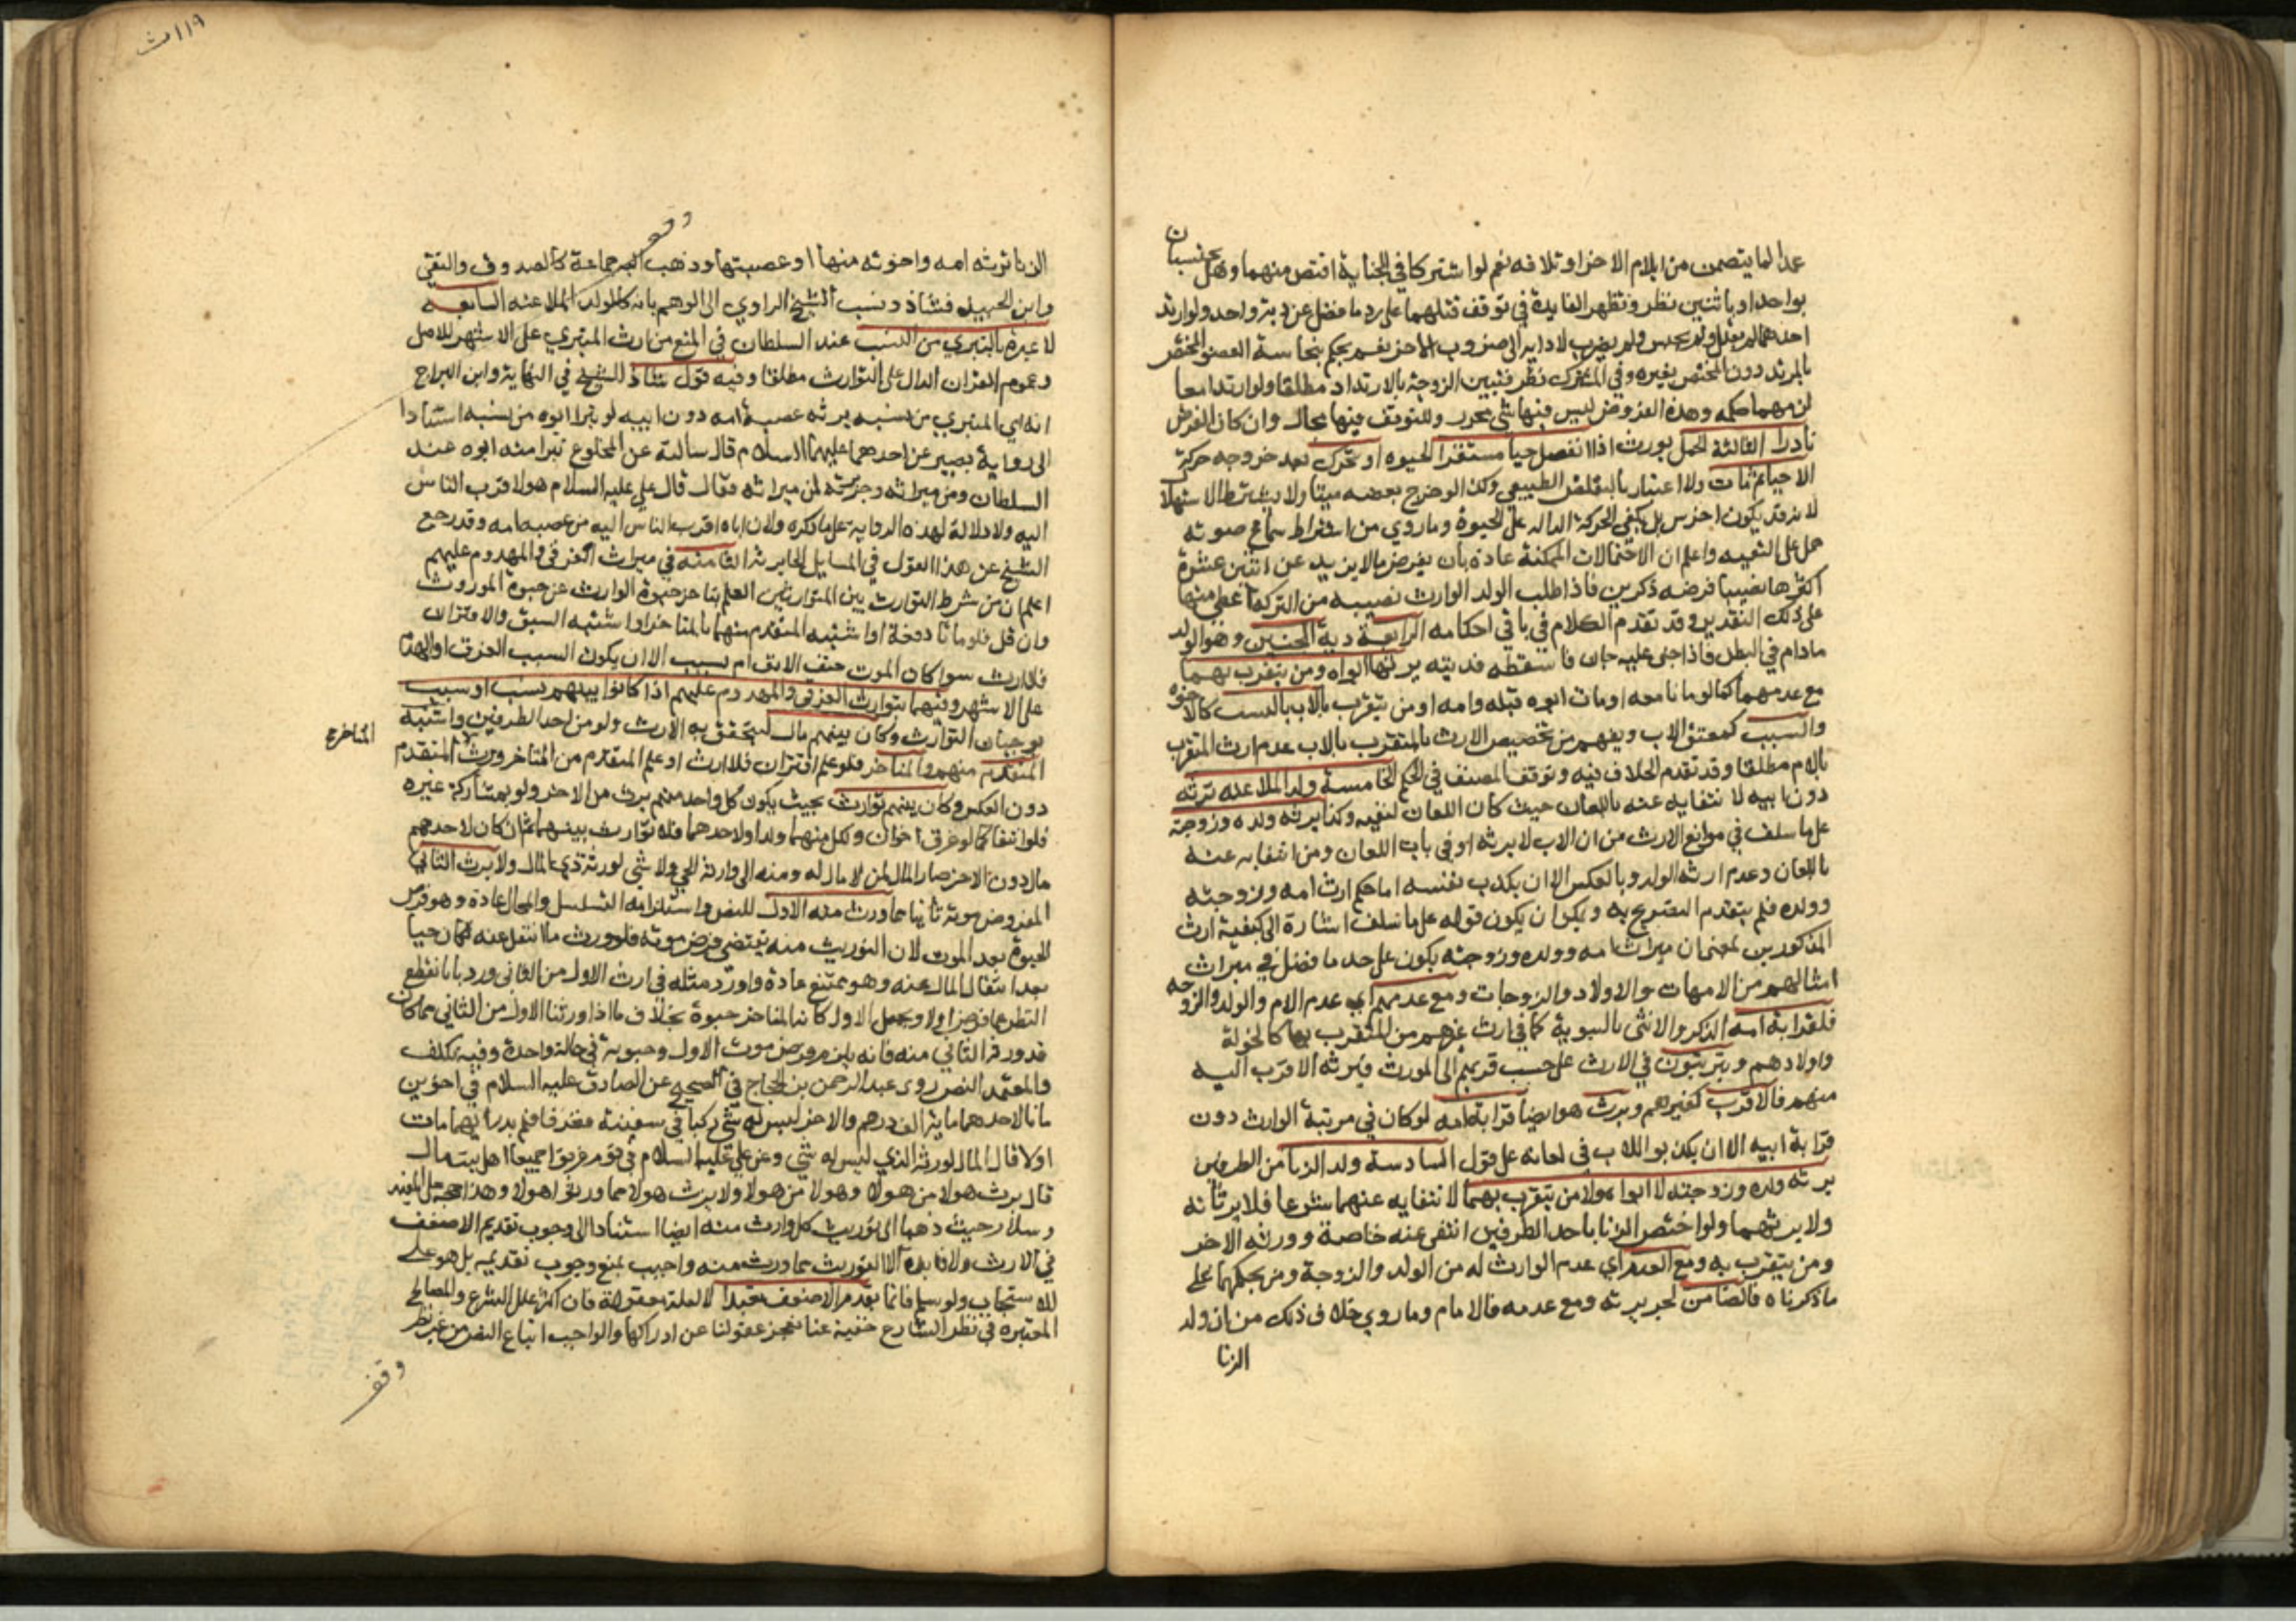 عمدا لما يتضمن من ايلام الاخر او تلافه نعم لو اشتركا في الجناية اقتص منهما وهل يحتسبان
بواحد او باثنين نظر وتظهر الفايدة في توقف قتلهما على رد ما فضل عن دية واحد ولو ارتد
احدهما لم يقتل ولم يحبس ولم يضرب لادايه الى ضرر الاخر نعم يحكم بنجاسة العضو المختص
بالمرتد دون المختص بغيره وفي المشترك نظر فتبين الزوجة بالارتداد مطلقا ولو ارتدا معا
لزمهما حكمه وهذه الفروض ليس فيها شي محرر وللتوقف فيها مجال وان كان الفرض
نادرا الثالثة الحمل يورث اذا انفصل حيا مستقر الحيوه او تحرك بعد خروجه حركة
الاحيا ثم مات ولا اعتبار بالتقلص الطبيعي وكذا لو خرج بعضه ميتا ولا يشترط الاستهلال
لانه قد يكون اخرس بل يكفي الحركة الداله على الحيوة وما روي من اشتراط سماع صوته
حمل على التقيه واعلم ان الاحتمالات الممكنة عادة بان يفرض ما لا يزيد عن اثنين عشرة
اكثرها نصيبا فرضه ذكرين فاذا طلب الولد الوارث نصيبه من التركة اعطي منها
على ذلك التقدير وقد تقدم الكلام في باقي احكامه الرابعة دية الجنين وهو الولد
مادام في البطن فاذا جنى عليه جان فاسقطه فديته يرثها ابواه ومن يتقرب بهما
مع عدمهما كما لو ماتا معه او مات ابوه قبله وامه او من يتقرب بالاب بالنسب كالاخوه
والسبب كمعتق الاب ويفهم من تخصيص الارث بالمتقرب بالاب عدم ارث المتقرب
بالام مطلقا وقد تقدم الخلاف فيه وتوقف المصنف في الحكم الخامسة ولد الملاعنه ترثه
دون ابيه لانتفايه عنه باللعان حيث كان اللعان لنفيه وكذا يرثه ولده وزوجته
على ما سلف في موانع الارث من ان الاب لا يرثه او في باب اللعان ومن انتفايه عنه
باللعان وعدم ارثه الولد وبالعكس الا ان يكذب نفسه اما حكم ارث امه وزوجته
وولده فلم يتقدم التصريح به ويمكن ان يكون قوله على ما سلف اشارة الى كيفية ارث
المذكورين بمعنى ان ميراث امه وولده وزوجته يكون على حد ما فصل في ميراث
امثالهم من الامهات والاولاد والزوجات ومع عدمهم اي عدم الام والولد والزوجه
فلقرابة امه الذكر والانثى بالسوية كما في ارث غيرهم من المتقرب بها كالخولة
واولادهم ويترتبون في الارث على حسب قربهم الى المورث فيرثه الاقرب اليه
منهم فالاقرب كغيرهم ويرث هو ايضا قرابة امه لو كان في مرتبة الوارث دون
قرابة ابيه الا ان يكذبوا الاب في لعانه على قول السادسة ولد الزنا من الطرفين
يرثه ولده وزوجته لا ابواه ولا من يتقرب بهما لانتفايه عنهما شرعا فلا يرثانه
ولا يرثهما ولو اختص الزنا باحد الطرفين انتفى عنه خاصة وورثه الاخر
ومن يتقرب به ومع العدم اي عدم الوارث له من الولد والزوجة ومن بحكمهما على
ما ذكرناه فالضامن لجريرته ومع عدمه فالامام وما روي خلاف ذلك من ان ولد
الزنا
١١٩
وقف
الزنا ترثه امه واخوته منها او عصبتها وذهب اليه جماعة كالصدوق والتقي
وابن الجنيد فشاذ ونسب الشيخ الراوي الى الوهم بانه كالولد الملاعنه السابعه
لا عبرة بالتبري من النسب عند السلطان في المنع من ارث المتبري على الاشهر للاصل
وعموم القران الدال على التوارث مطلقا وفيه قول شاذ للشيخ في النهاية وابن البراج
انه اي المتبري من نسبه يرثه عصبة امه دون ابيه لو تبرا ابوه من نسبه استنادا
الى رواية بصير عن احدهما عليهما السلام قال سالته عن المخلوع تبرا منه ابوه عند
السلطان ومن ميراثه وجريرته لمن ميراثه فقال قال علي عليه السلام هو لاقرب الناس
اليه ولا دلالة لهذه الرواية على ما ذكره ولان اباه اقرب الناس اليه من عصبة امه وقد رجع
الشيخ عن هذا القول في المسايل الحايرية الثامنه في ميراث الغرقى والمهدوم عليهم
اعلم ان من شرط التوارث بين المتوارثين العلم بتاخر حيوة الوارث عن حيوة الموروث
وان قل فلو ماتا دفعة او اشتبه المتقدم منهما بالمتاخر او اشتبه السبق والاقتران
فلا ارث سوا كان الموت حتف الانف ام بسبب الا ان يكون السبب الغرق او الهدم
على الاشهر وفيهما يتوارث الغرقى والمهدوم عليهم اذا كانوا بينهم نسب او سبب
يوجبان التوارث وكان بينهم مال ليتحقق به الارث ولو من احد الطرفين واشتبه
المتقدم منهم والمتاخر فلو علم اقتران فلا ارث او علم المتقدم من المتاخر ورث المتقدم
المتاخر ح
دون العكس وكان بينهم توارث بحيث يكون كل واحد منهم يرث من الاخر ولو بمشاركة غيره
فلو انتفا كما لو غرق اخوان ولكل منهما ولد او لاحدهما فلا توارث بينهما ثم ان كان لاحدهم
مال دون الاخر صار المال لمن لا مال له ومنه الى وارثه الحي ولا شي لورثة ذي المال ولا يرث الثاني
المفروض موته ثانيا مما ورث منه الاول للنص واستلزامه التسلسل والمحال عادة وهو فرض
الحيوة بعد الموت لان التوريث منه يقتضي فرض موته فلو ورث ما انتقل عنه لكان حيا
بعد انتقال المال عنه وهو ممتنع عادة واورد مثله في ارث الاول من الثاني ورد بانا نقطع
النظر عما فرض اولا ونجعل الاول كانه المتاخر حيوة بخلاف ما اذا ورثنا الاول من الثاني مما كان
قد ورثه الثاني منه فانه يلزم فرض موت الاول وحيوته في حالة واحدة وفيه تكلف
والمعتمد النص روى عبد الرحمن بن الحجاج في الصحيح عن الصادق عليه السلام في اخوين
ماتا لاحدهما ماية الف درهم والاخر ليس له شي ركبا في سفينة فغرقا فلم يدر ايهما مات
اولا قال المال لورثة الذي ليس له شي وعن علي عليه السلام في قوم غرقوا جميعا اهل بيت مال
قال يرث هولا من هولا وهولا من هولا ولا يرث هولا مما ورثوا هولا وهذا حجة على المفيد
وسلار حيث ذهبا الى توريث كل وارث منه ايضا استنادا الى وجوب تقديم الاضعف
في الارث ولا فايده الا التوريث مما ورث منه واجيب بمنع وجوب تقديمه بل هو على
الاستحباب ولو سلم فانما يقدم الاضعف تعبدا لا لعلة معقولة فان اكثر علل الشرع والمصالح
المعتبره في نظر الشارع خفية عنا تعجز عقولنا عن ادراكها والواجب اتباع النص من غير نظر
وقف